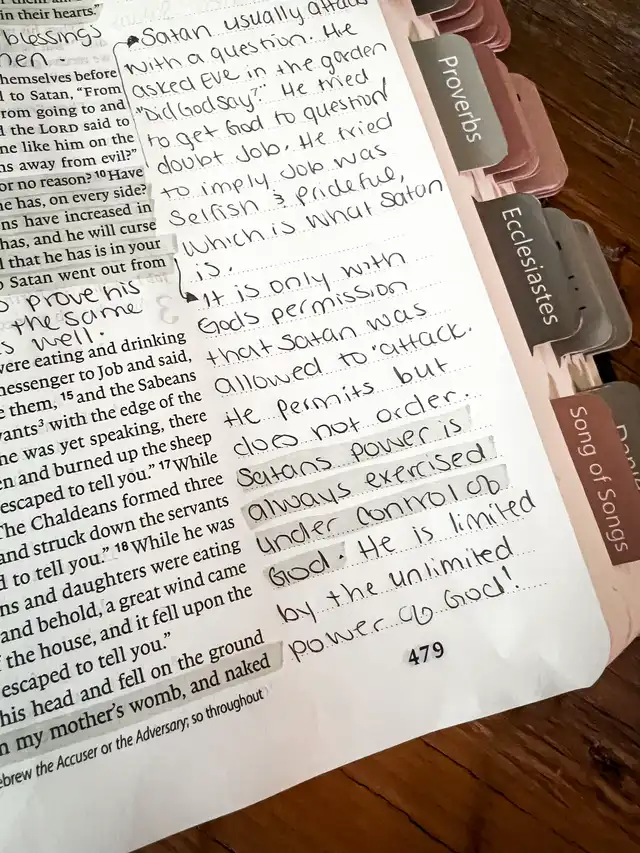 in their hearts."
blessings
hemselves before
to Satan, "From
rom going to and
d the LORD said to
ne like him on the
ns away from evil?"
or no reason? 10 Have
he has, on every side?
ns have increased in
has, and he will curse
that he has is in your
Satan went out from
prove his
the same
well.
were eating and drinking
messenger to Job and said,
e them, 15 and the Sabeans
vants3 with the edge of the
he was yet speaking, there
en and burned up the sheep
escaped to tell you." 17 While
The Chaldeans formed three
and struck down the servants
d to tell you." 18 While he was
ns and daughters were eating
and behold, a great wind came
the house, and it fell upon the
escaped to tell you."
his head and fell on the ground
n my mother's womb, and naked
ebrew the Accuser or the Adversary; so throughout
Satan usually attack
with a question. He
asked Eve in the garden
"Did God say?" He tried
to get God to question/
doubt Job. He tried
to imply Job was
Selfish & Prideful,
which is what Satan
is.
It is only with
Gods permission
that Satan was
allowed to attack.
He permits but
does not order.
Satans power is
always exercised
under control of
God. He is limited
by the unlimited
power of God!
479
Proverbs
Ecclesiastes
Song of Songs